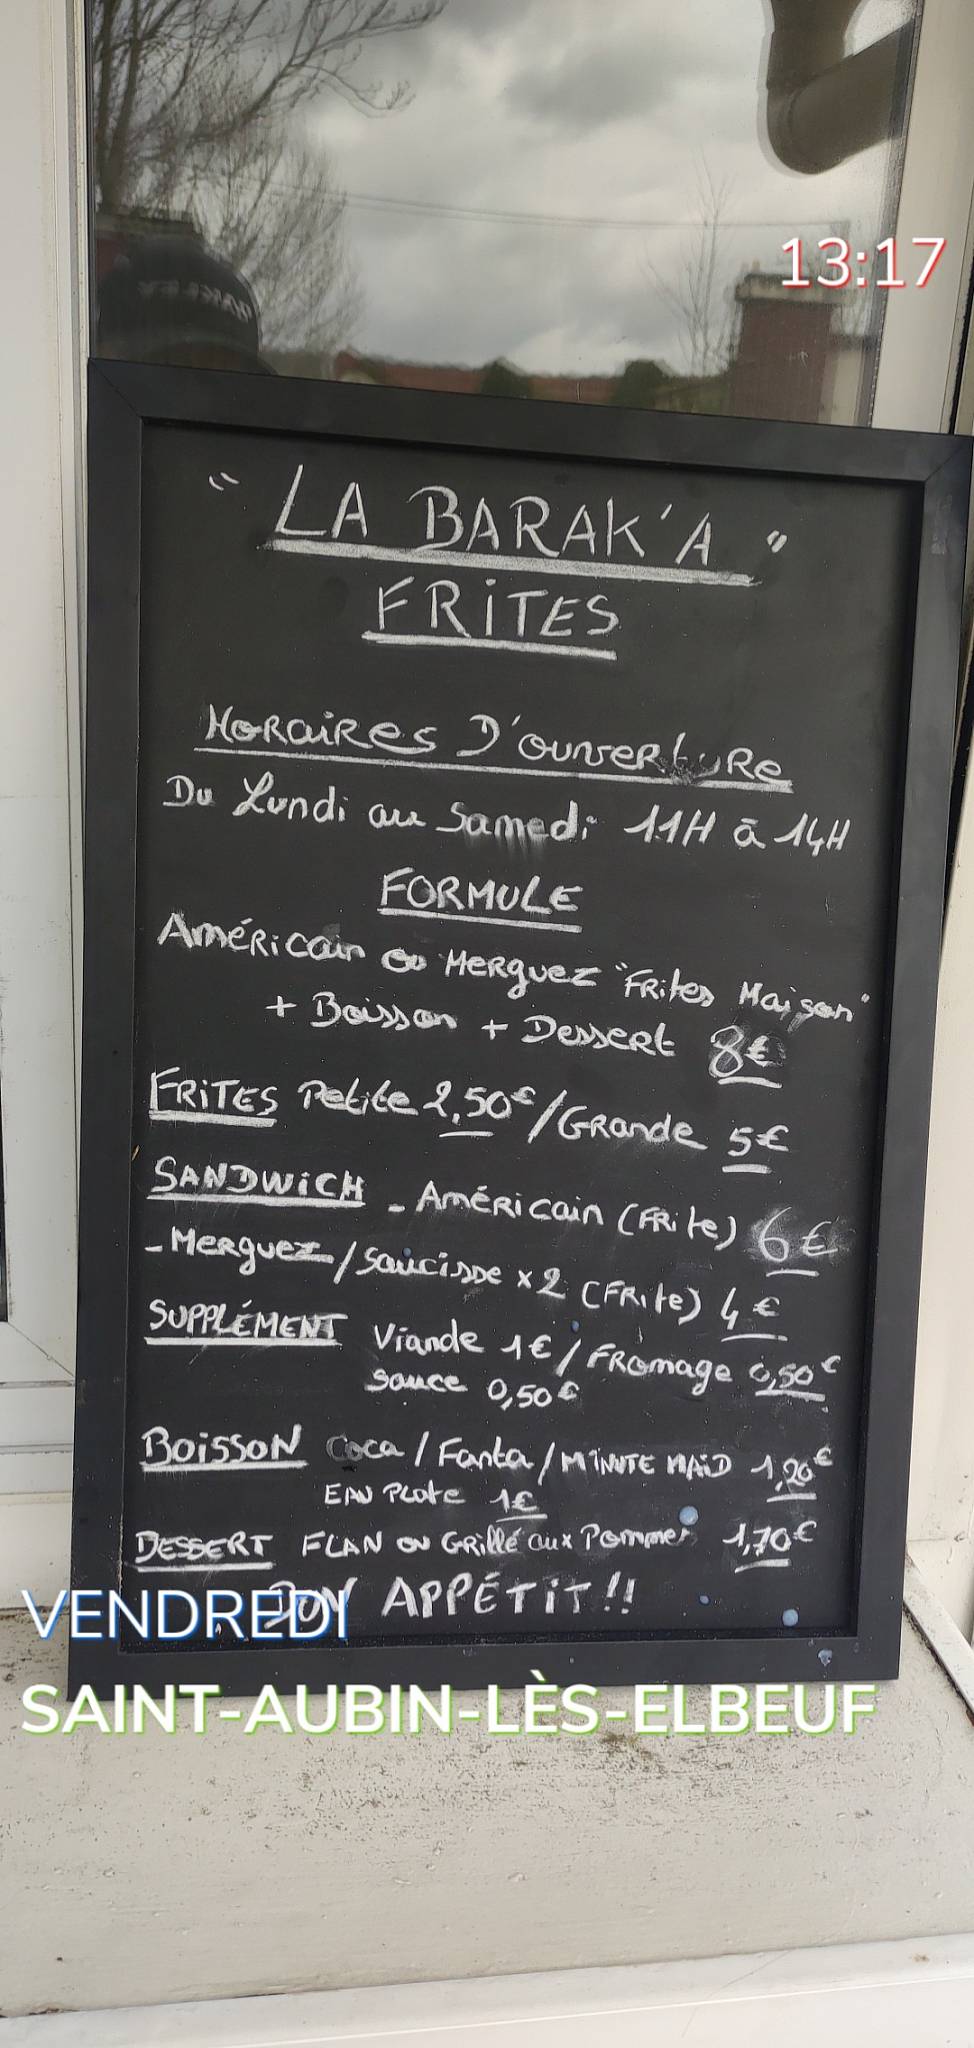 13:17
" LA BARAK'A "
FRITES
HORAIRES D'OUVERTURE
Du Lundi au Samedi 11H à 14H
FORMULE
Américain ou Merguez "Frites Maison"
+ Boisson + Dessert 8€
FRITES Petite 2,50€ / Grande 5€
SANDWICH - Américain (Frite) 6€
- Merguez / Saucisse x 2 (Frite) 4€
SUPPLÉMENT Viande 1€ / Fromage 0,50€
Sauce 0,50€
BOISSON Coca / Fanta / MINUTE MAID 1,20€
EAU Plate 1€
DESSERT FLAN ou Grillé aux Pommes 1,70€
BON APPÉTIT !!
VENDREDI
SAINT-AUBIN-LÈS-ELBEUF